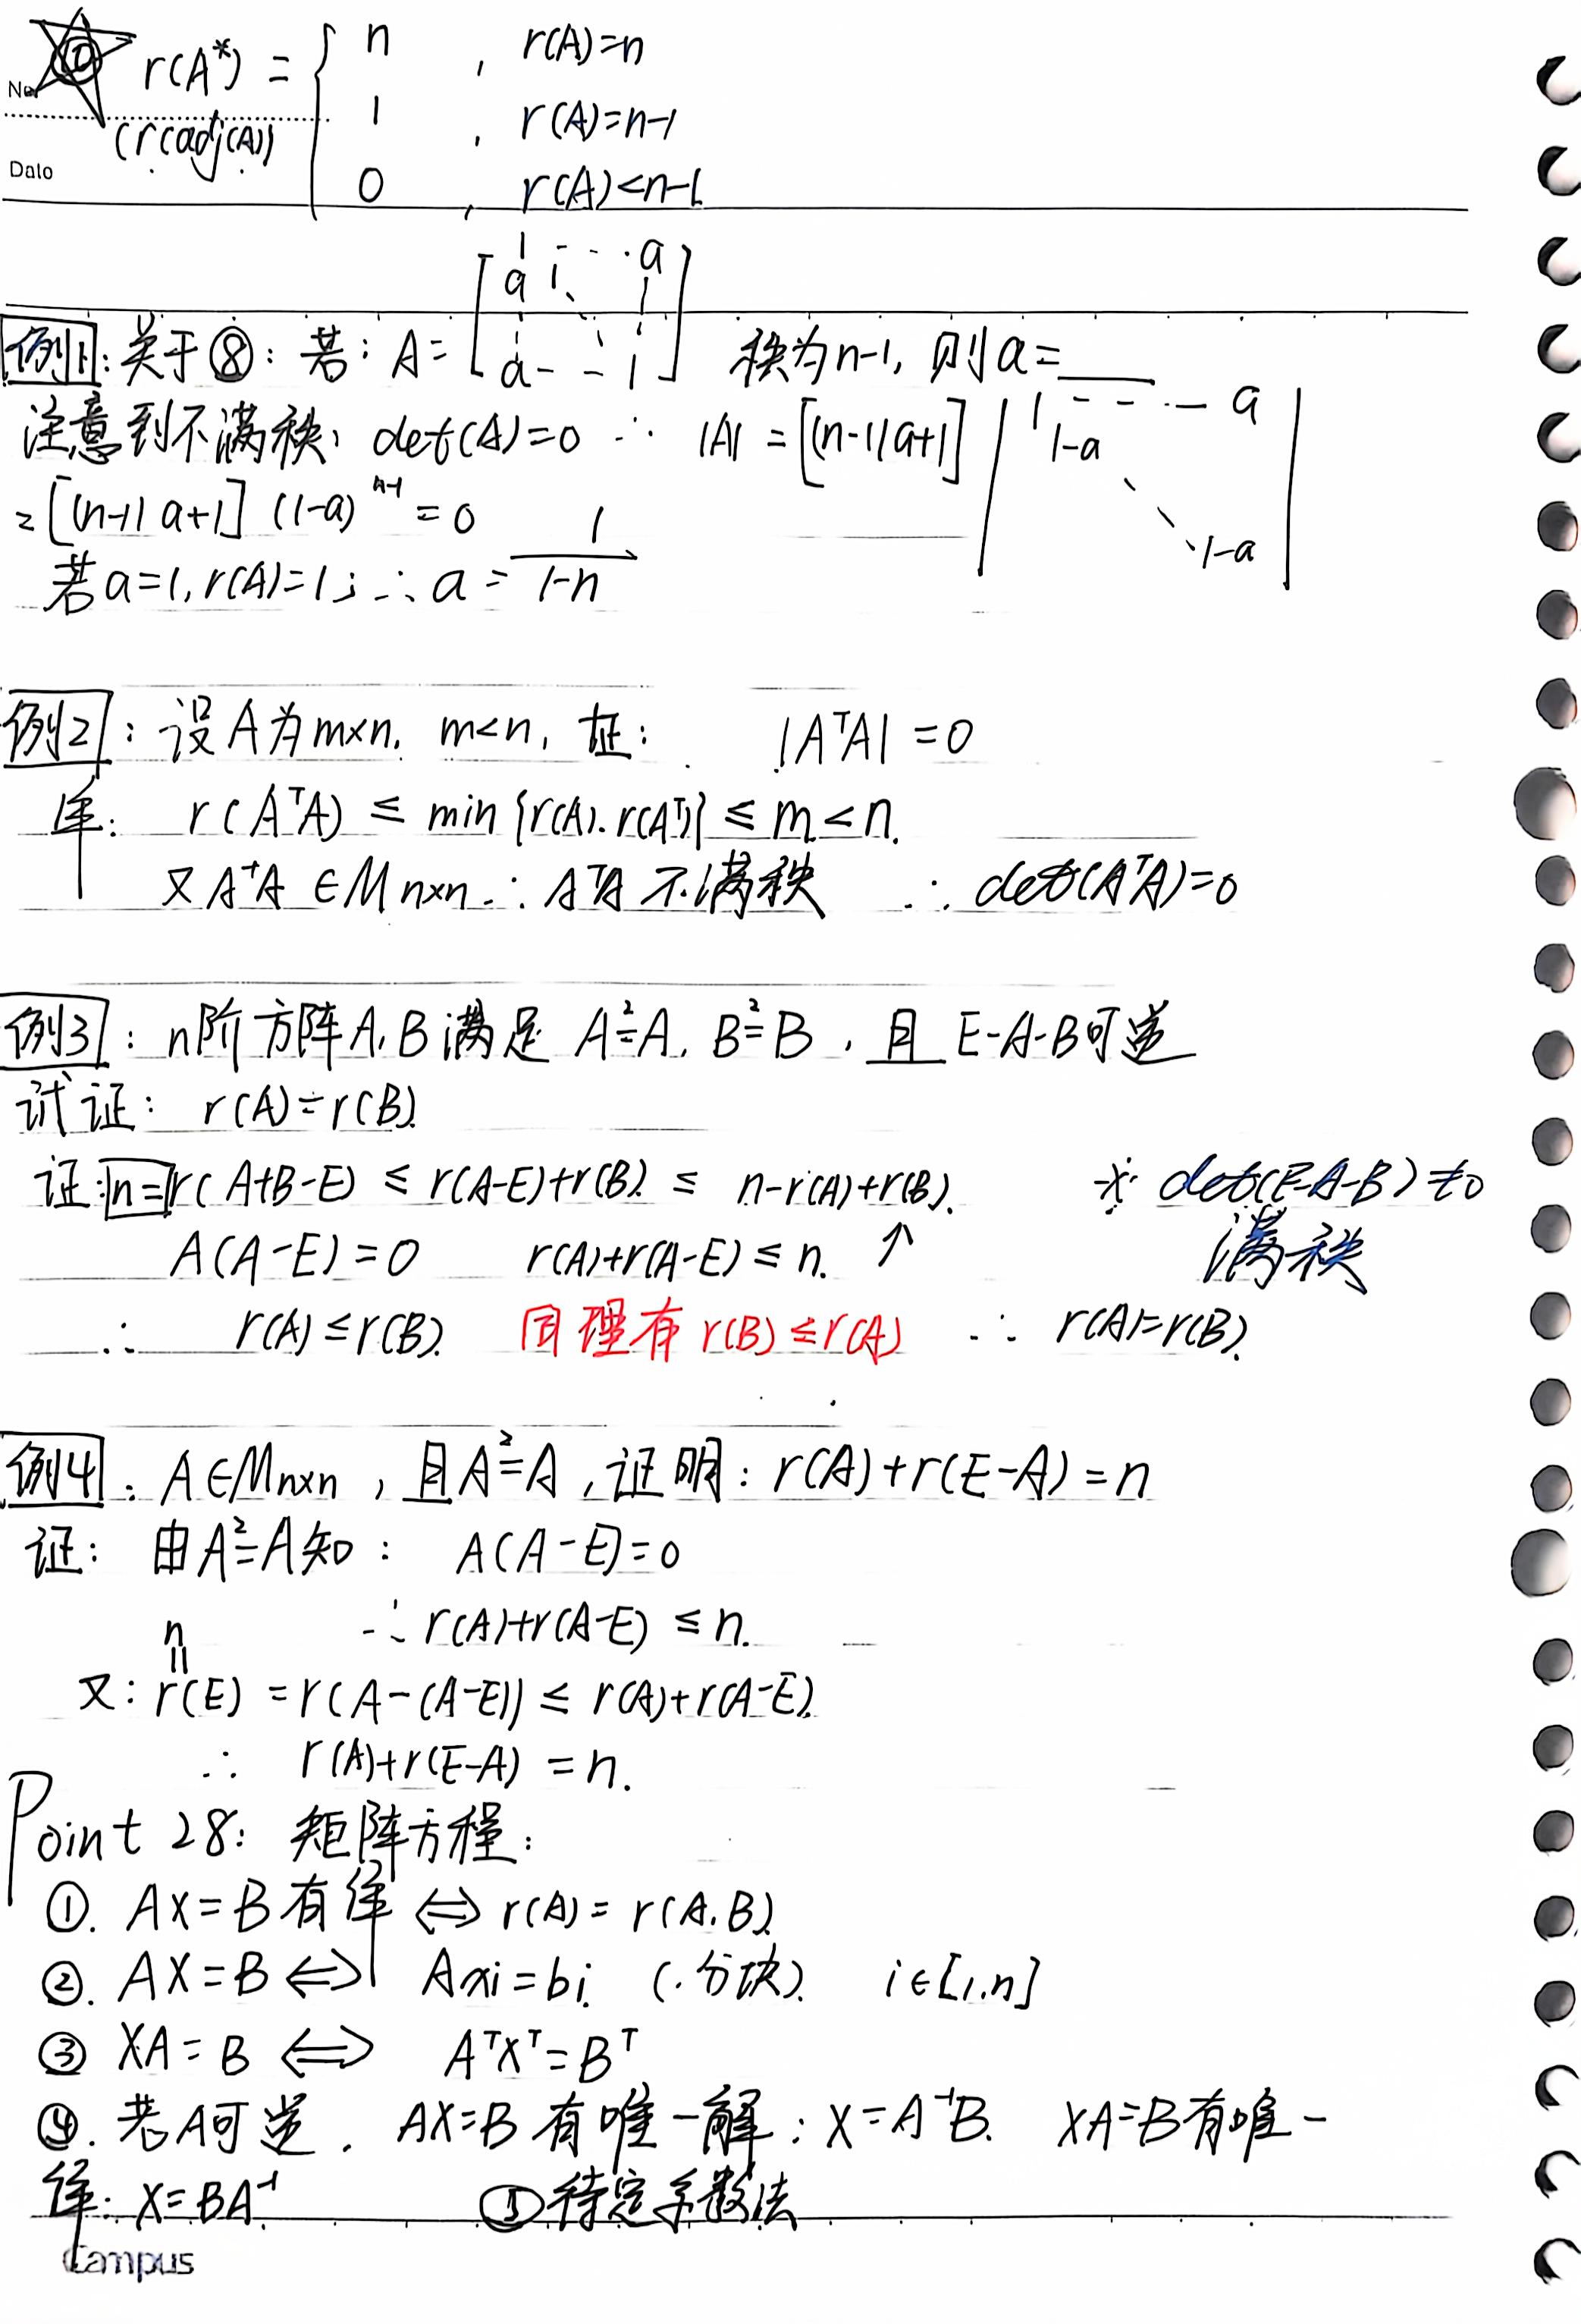 No.
Date
⑩ r(A*) = { n , r(A)=n
(r(adj(A)) 1 , r(A)=n-1
0 , r(A)<n-1
例1: 关于⑧: 若: A= [ 1 - - · a
a 1 ⋱ ⋮
a - - 1 ] 秩为n-1, 则a=____
注意到不满秩, det(A)=0 ∴ |A| = [(n-1)a+1] | 1 - - · - a
1-a
⋱
1-a |
= [(n-1)a+1] (1-a)^{n-1} = 0
若a=1, r(A)=1; ∴ a = 1/(1-n)
例2: 设A为m×n, m<n, 证: |AᵀA| = 0
解: r(AᵀA) ≤ min{r(A), r(Aᵀ)} ≤ m < n.
又AᵀA ∈ M n×n ∴ AᵀA 不满秩 ∴ det(AᵀA)=0
例3: n阶方阵A, B满足 A²=A, B²=B, 且 E-A-B可逆
试证: r(A)=r(B)
证: n=r(A+B-E) ≤ r(A-E)+r(B) ≤ n-r(A)+r(B). ※ det(E-A-B)≠0
满秩
A(A-E)=0 r(A)+r(A-E) ≤ n. ↑
∴ r(A)≤r(B). 同理有 r(B)≤r(A) ∴ r(A)=r(B).
例4: A∈Mn×n, 且A²=A, 证明: r(A)+r(E-A)=n
证: 由A²=A知: A(A-E)=0
∴ r(A)+r(A-E) ≤ n.
n
||
又: r(E) = r(A-(A-E)) ≤ r(A)+r(A-E).
∴ r(A)+r(E-A) = n.
Point 28: 矩阵方程:
①. AX=B有解 ⟺ r(A) = r(A, B)
②. AX=B ⟺ Axi=bi (分块). i∈[1,n]
③ XA=B ⟺ AᵀXᵀ=Bᵀ
④. 若A可逆, AX=B有唯一解: X=A⁻¹B. XA=B有唯一
解: X=BA⁻¹ ⑤待定系数法
Campus